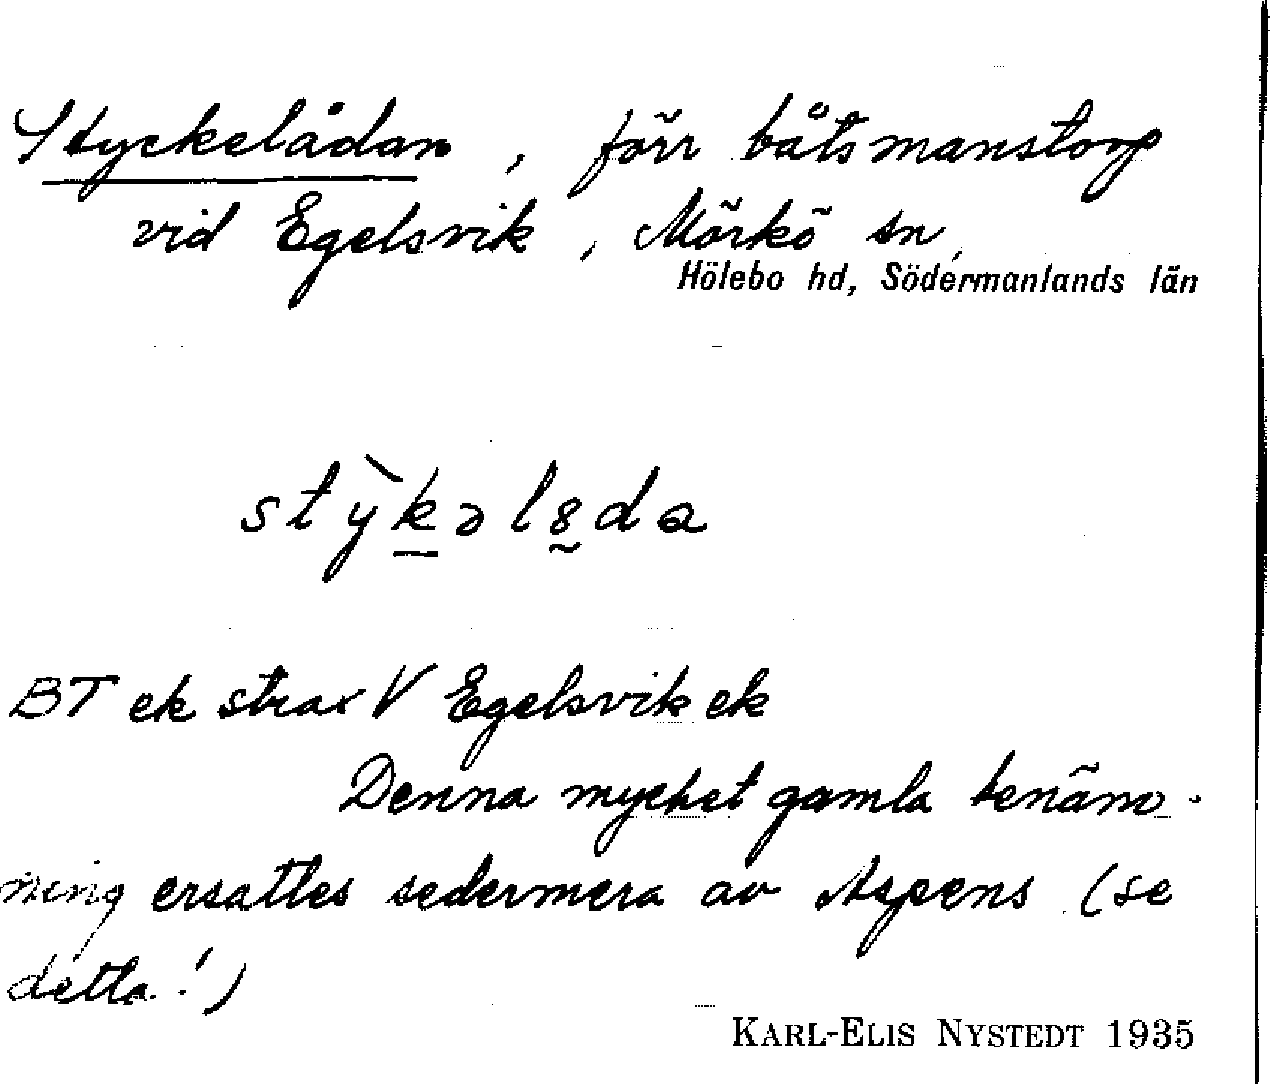 Styckelådan, förr båtsmanstorp
vid Egelsvik, Mörkö sn,
Hölebo hd, Södermanlands län
stỳkəl8da
BT ek strax V Egelsvik ek
Denna mycket gamla benäm-
ning ersattes sedermera av Aspens (se
detta!)
KARL-ELIS NYSTEDT 1935